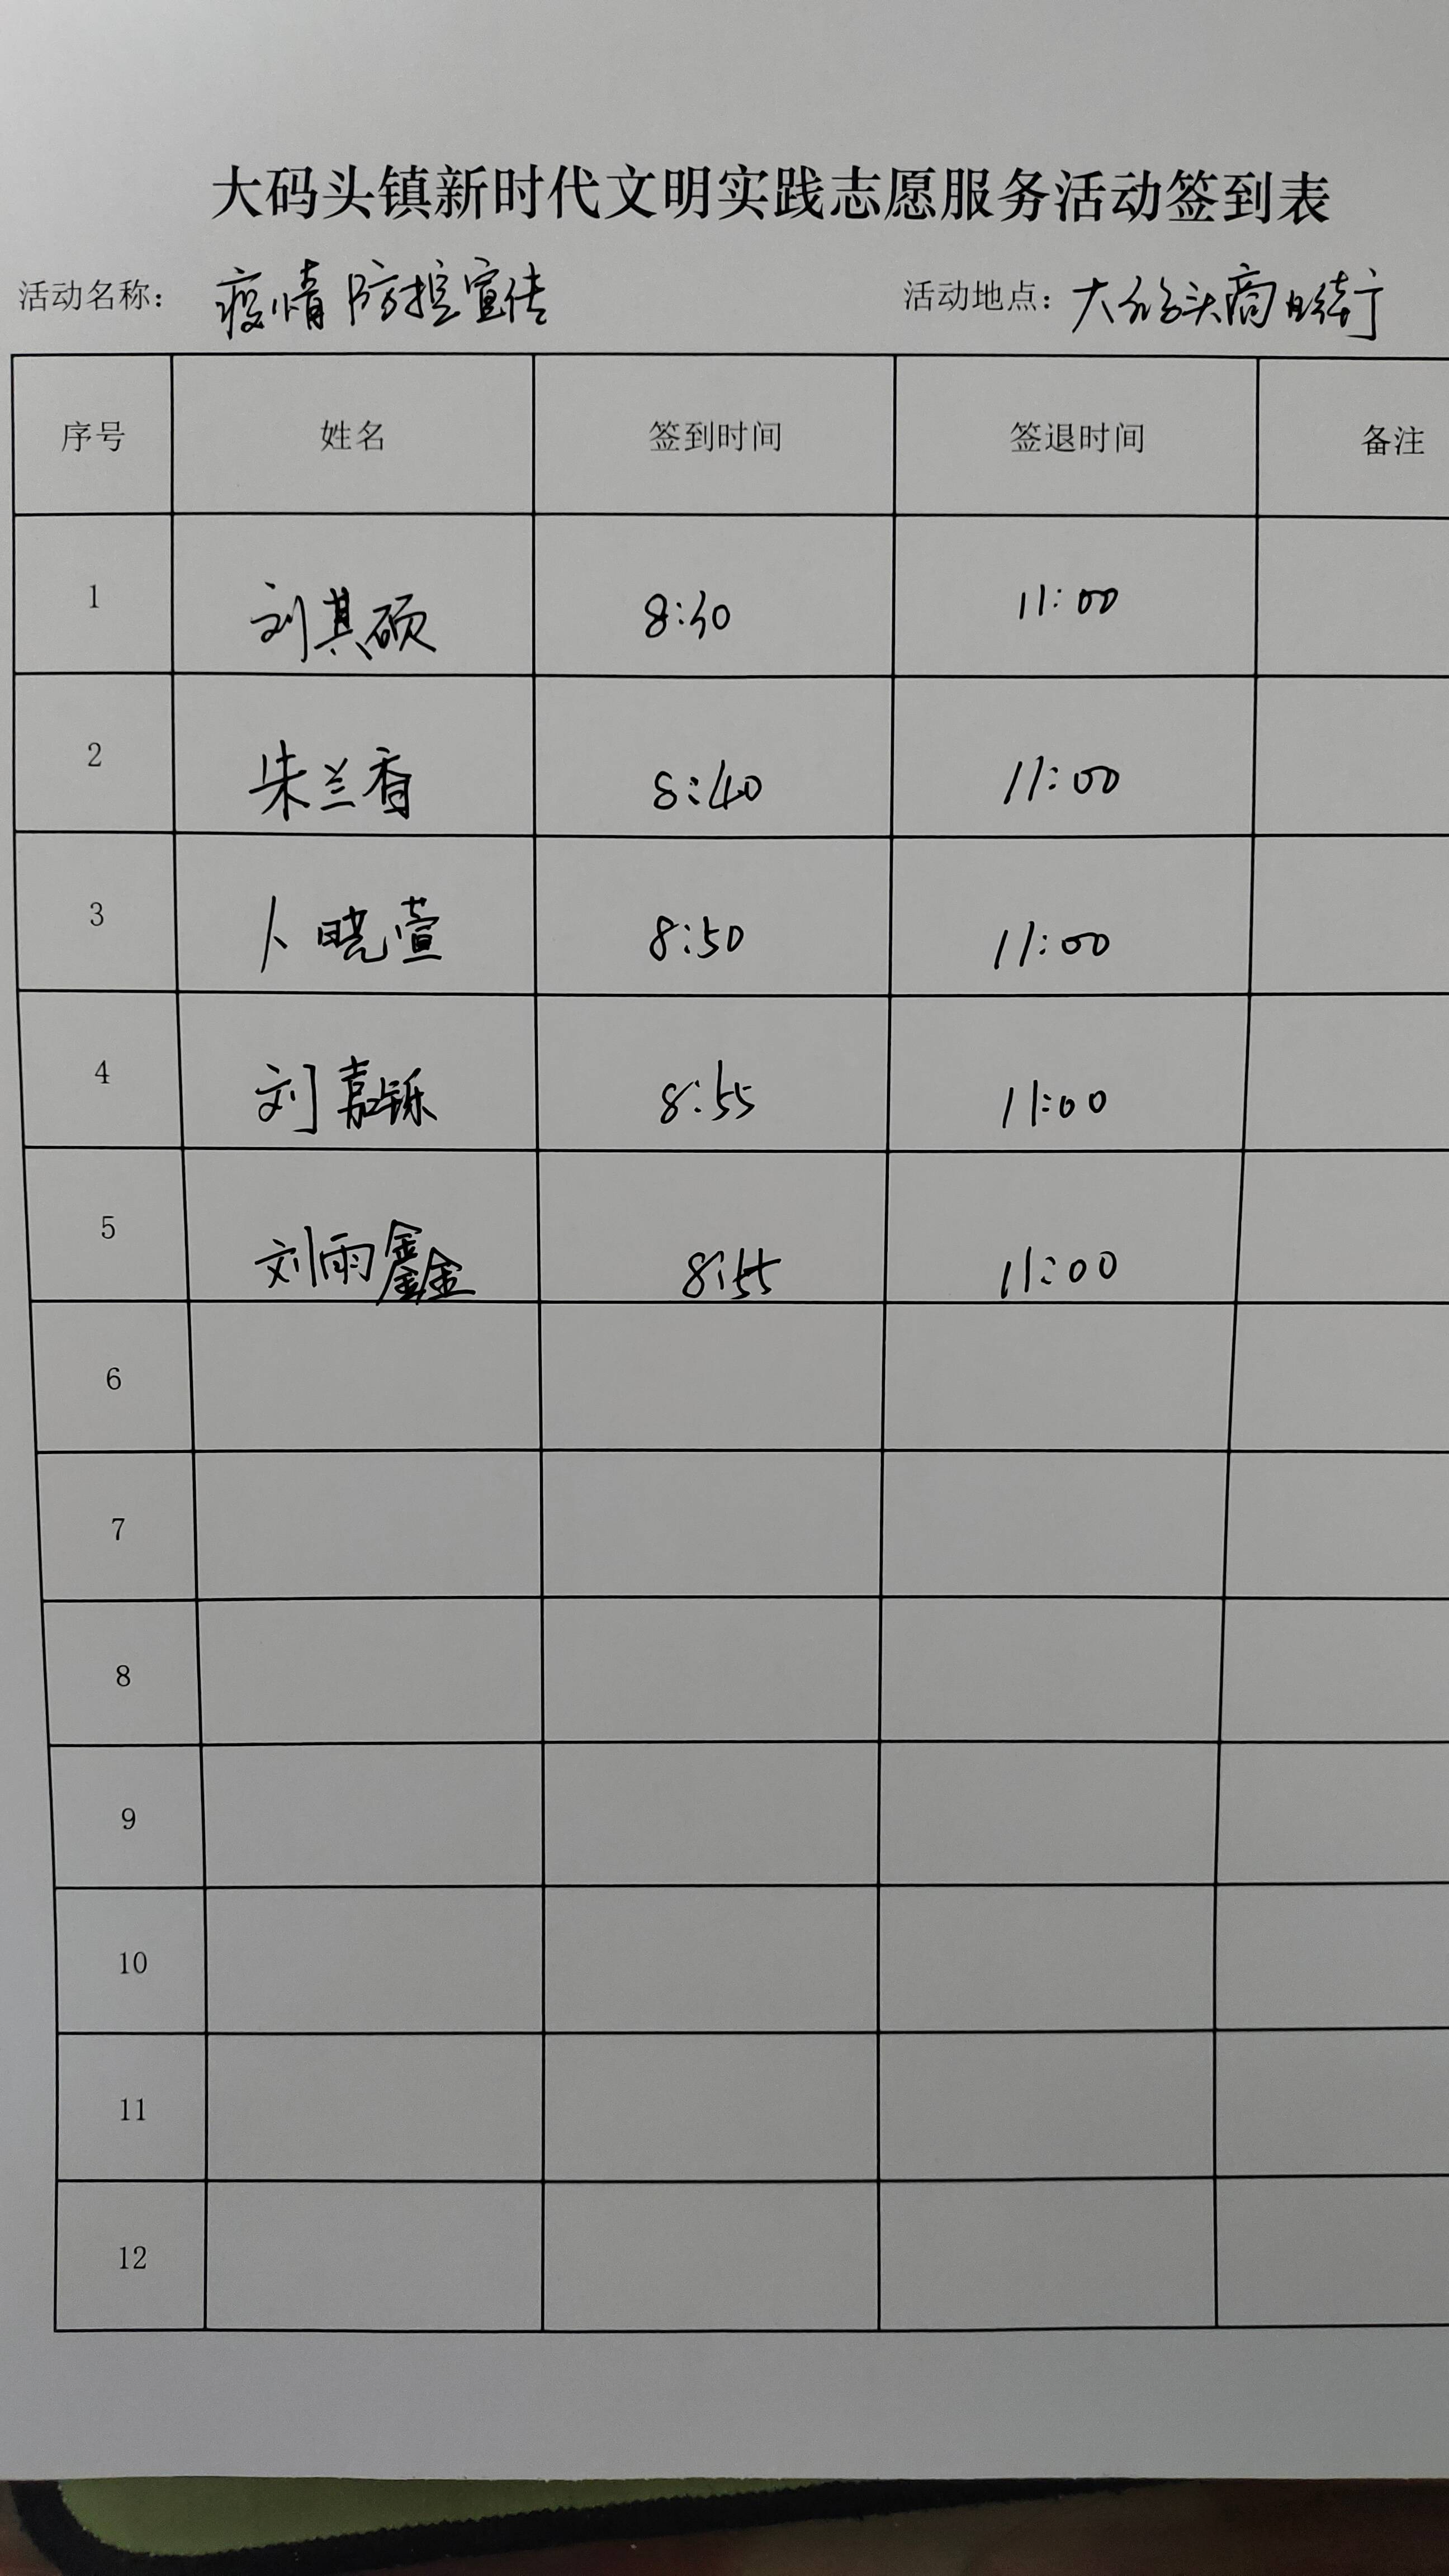 大码头镇新时代文明实践志愿服务活动签到表
活动名称： 疫情防控宣传 活动地点：大码头商业街
序号 姓名 签到时间 签退时间 备注
1 刘其硕 8:30 11:00
2 朱兰香 8:40 11:00
3 卜晓萱 8:50 11:00
4 刘嘉铄 8:55 11:00
5 刘雨鑫 8:55 11:00
6
7
8
9
10
11
12